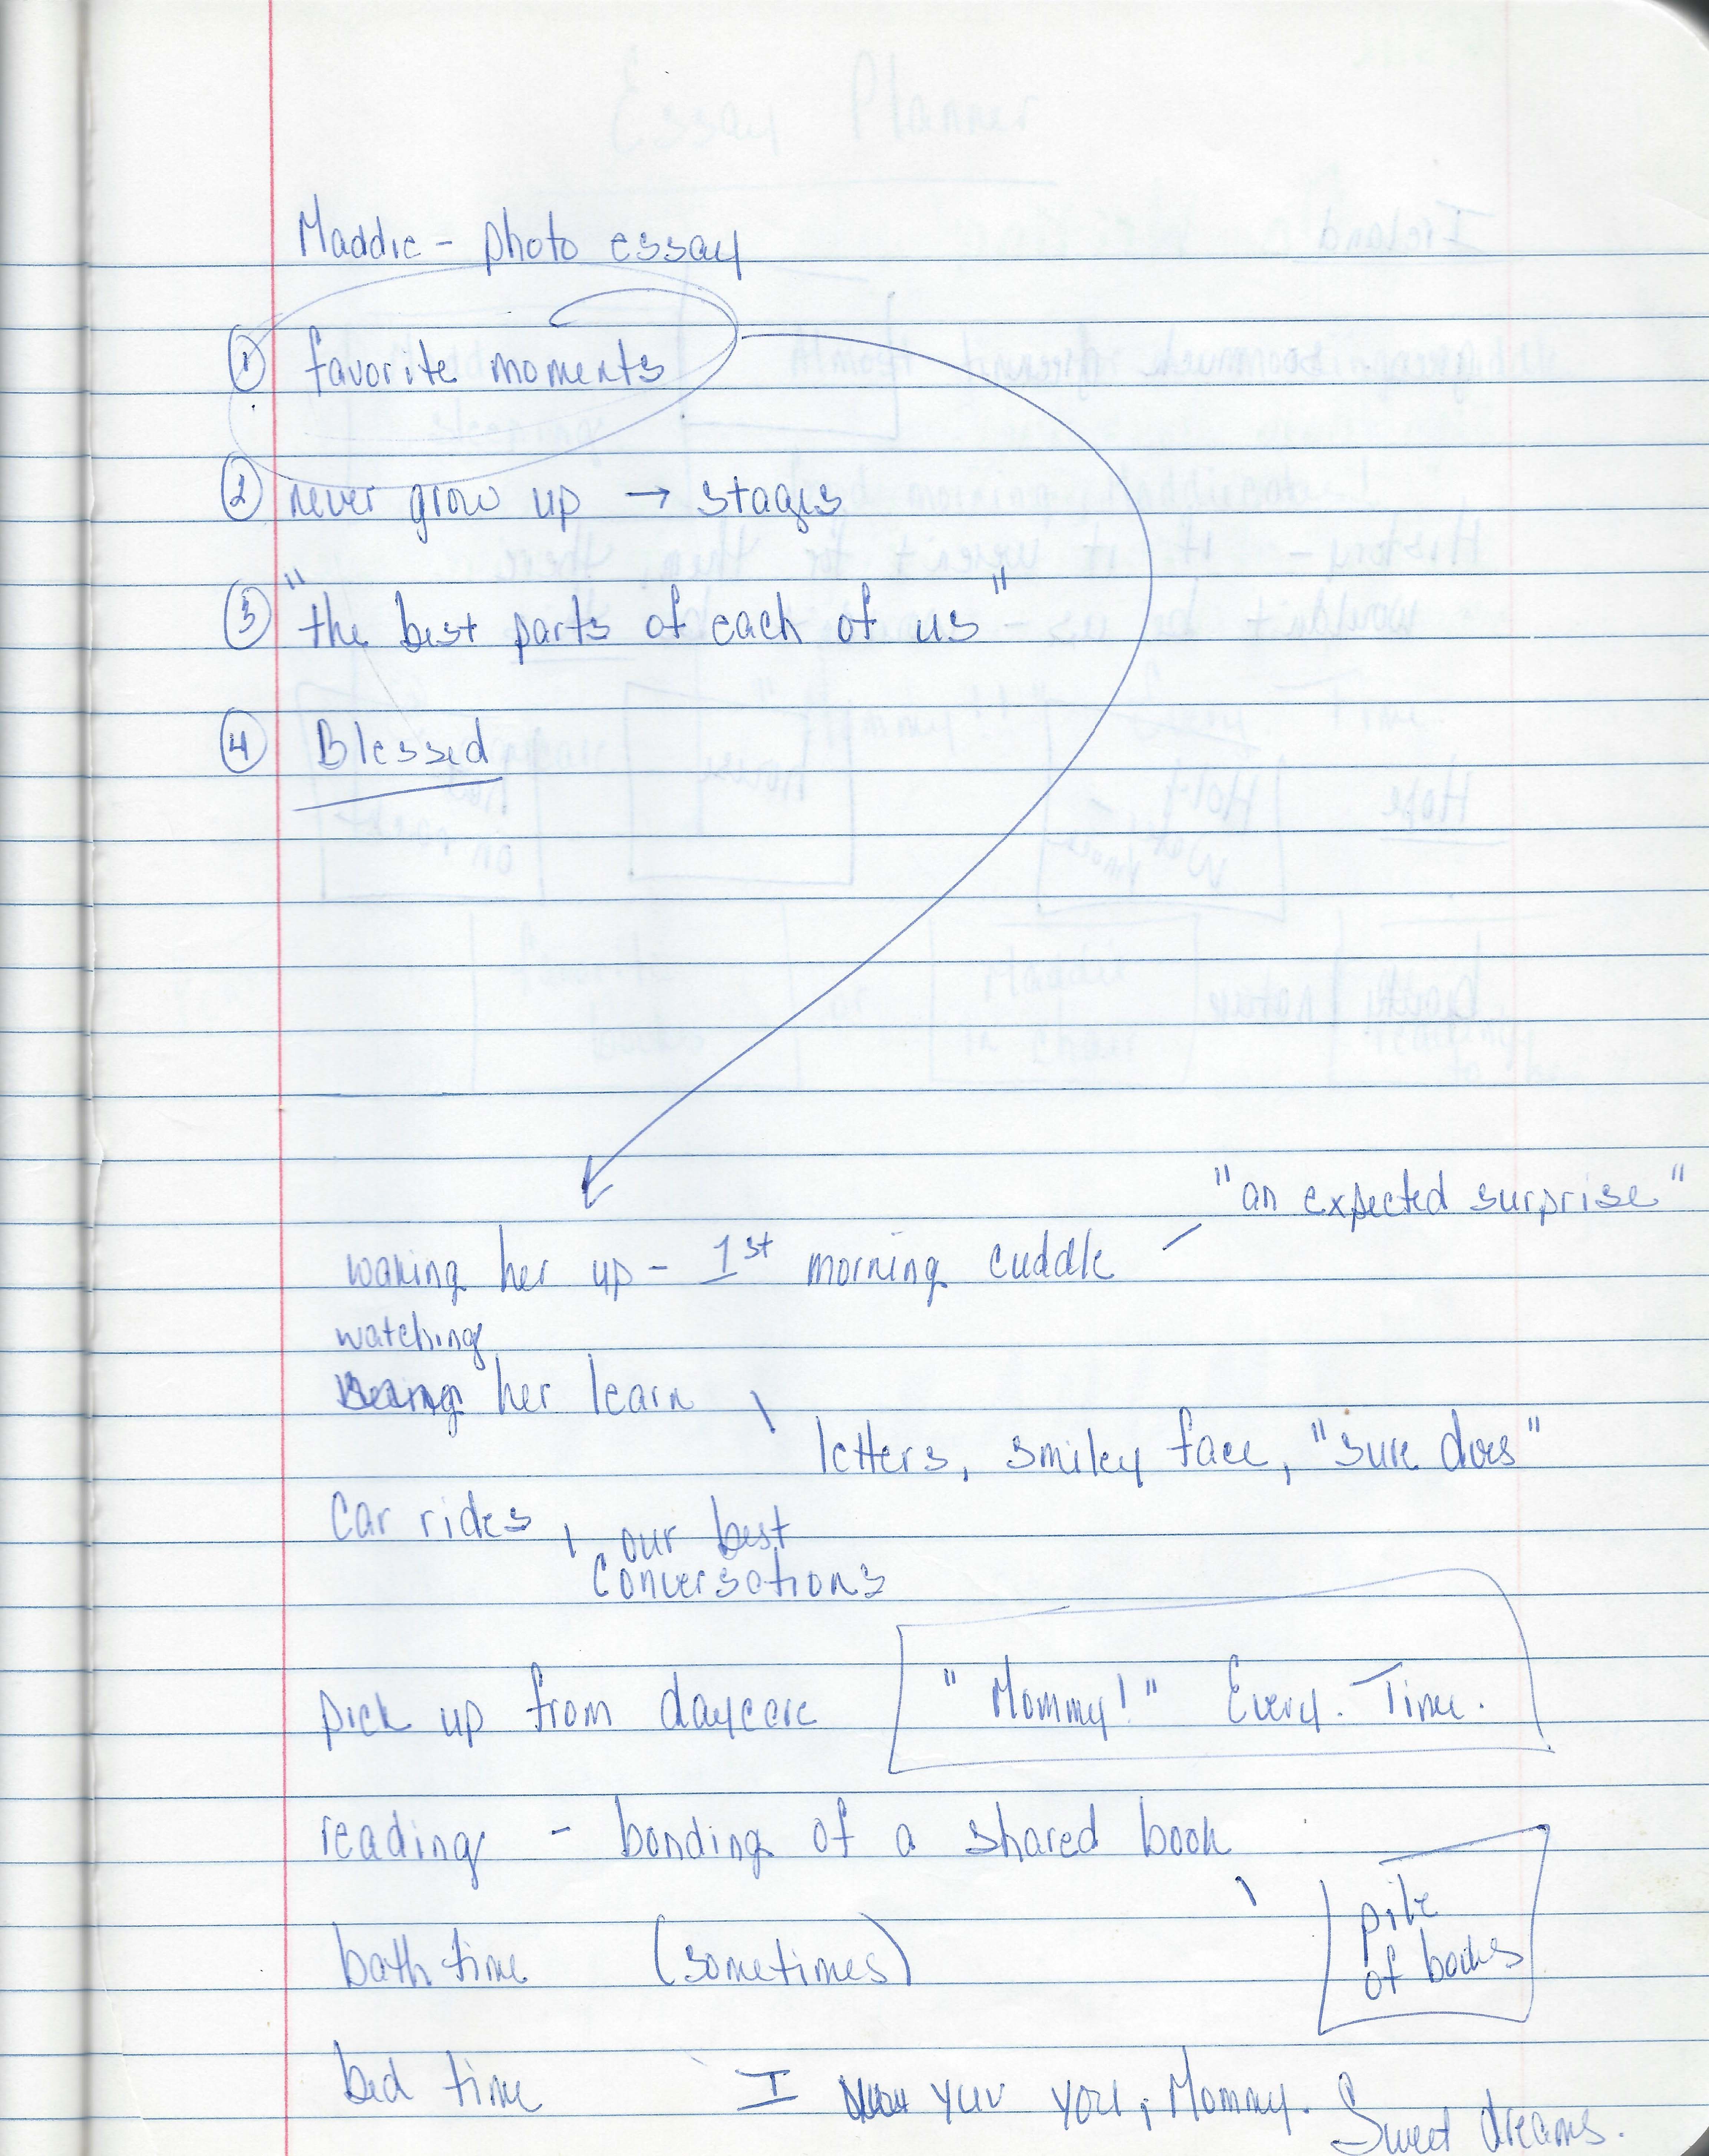 Maddie - photo essay
① favorite moments
② never grow up → stages
③ "the best parts of each of us"
④ Blessed
"an expected surprise"
waking her up - 1st morning cuddle
watching
her learn
letters, smiley face, "sure does"
Car rides, our best
conversations
pick up from daycare "Mommy!" Every. Time.
reading - bonding of a shared book
pile
of books
bath time (sometimes)
bed time I yuv you, Mommy. Sweet dreams.